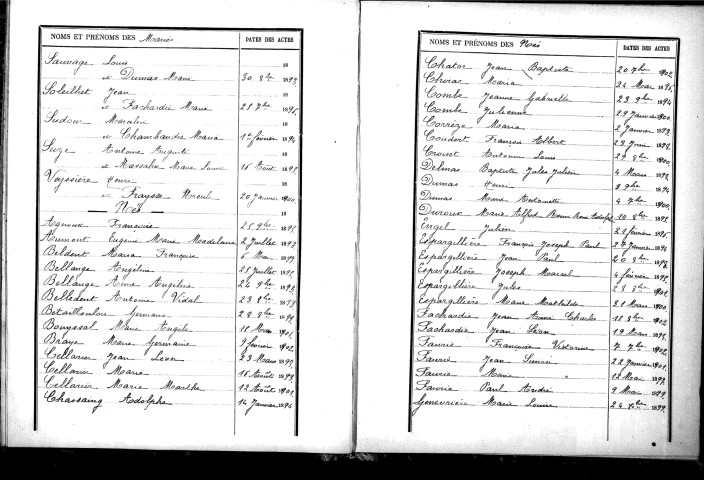 NOMS ET PRÉNOMS DES Mariés DATES DES ACTES
Sauvage Louis 18
et Dumas Marie 30 8bre 1893
Soleilhet Jean 18
et Fachardie Marie 25 7bre 1895
Sudour Marcelin 18
et Chambaudie Maria 1er février 1896
Suze Antoine Auguste 18
et Massalve Marie Louise 16 Août 1898
Vayssière Henri 18
et Fraysse 20 Janvier 1900
Nés 18
Agnoux Françoise 25 9bre 1895
Aumont Eugénie Marie Madelaine 2 Juillet 1893
Beldent Maria Françoise 6 Mai 1899
Bellange Angéline 25 Juillet 1895
Bellange Anne Angéline 24 9bre 1893
Belledent Antoine Vidal 23 8bre 1898
Betailloulou Germaine 28 8bre 1899
Bouyssal Marie Angèle 18 Mars 1901
Braye Marie Germaine 9 février 1902
Cellarier Jean Léon 23 Mars 1899
Cellarier Marie 16 Août 1899
Cellarier Marie Marthe 12 Août 1901
Chassaing Adolphe 14 Janvier 1896
NOMS ET PRÉNOMS DES Nés DATES DES ACTES
Chator Jean Baptiste 20 7bre 1902
Chirac Maria 24 Mai 1895
Combe Jeanne Gabrielle 23 9bre 1894
Combe Julienne 29 Janvier 1900
Corrèze Maria 2 Janvier 1899
Coudert François Albert 23 Juin 1898
Crouet Antonin Louis 29 8bre 1900
Delmas Baptiste Jules Julien 4 Mars 1898
Dumas Henri 9 9bre 1896
Dumas Marie Antoinette 4 7bre 1900
Duroux Marie Alfred Adolphe 10 8bre 1898
Engel Julien 21 février 1895
Espargillière François Joseph Paul 27 Janvier 1896
Espargillière Jean Paul 20 8bre 1898
Espargillière Joseph Marcel 4 février 1895
Espargillière Jules 28 8bre 1901
Espargillière Marie Mathilde 21 Mars 1900
Fachardie Jean Anne Charles 15 8bre 1902
Fachardie Jean Léon 19 Mars 1895
Faurie Françoise Victorine 7 7bre 1902
Faurie Jean 22 Janvier 1901
Faurie Marie 12 Mai 1899
Faurie Paul André 9 Mai 1899
Genevrière Marie Louise 24 7bre 1899